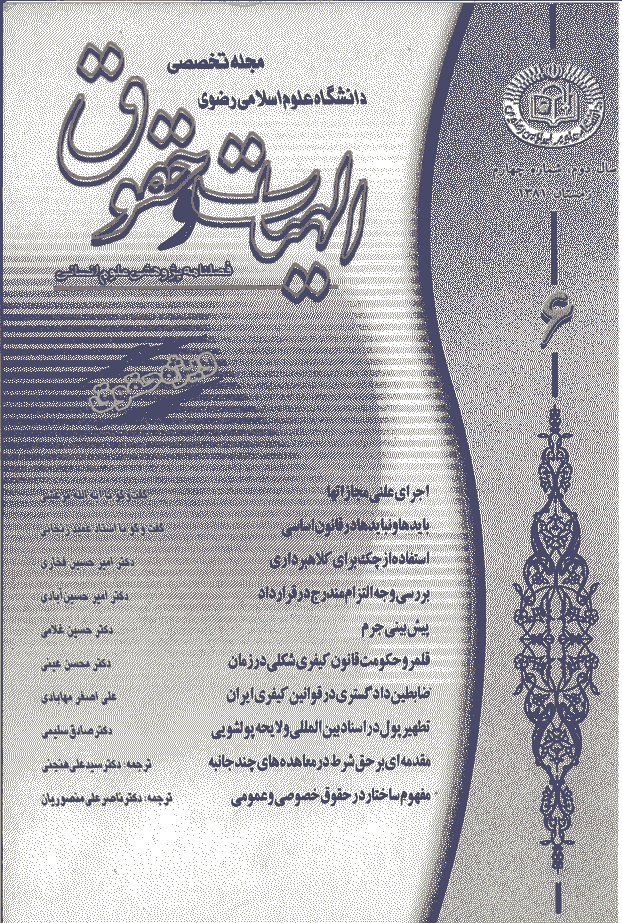 مجله تخصصی
دانشگاه علوم اسلامی رضوی
الهیات و حقوق
فصلنامه پژوهشی علوم انسانی
ویژه حقوق
سال دوم، شماره چهارم
زمستان ۱۳۸۱
۶
اجرای علنی مجازاتها گفت و گو با آیة الله مرعشی
بایدها و نبایدها در قانون اساسی گفت و گو با استاد عمید زنجانی
استفاده از چک برای کلاهبرداری دکتر امیر حسین فخاری
بررسی وجه التزام مندرج در قرارداد دکتر امیر حسین آبادی
پیش بینی جرم دکتر حسین غلامی
قلمرو حکومت قانون کیفری شکلی در زمان دکتر محسن عینی
ضابطین دادگستری در قوانین کیفری ایران علی اصغر مهابادی
تطهیر پول در اسناد بین المللی و لایحه پولشویی دکتر صادق سلیمی
مقدمه ای بر حق شرط در معاهده های چند جانبه ترجمه: دکتر سید علی هنجنی
مفهوم ساختار در حقوق خصوصی و عمومی ترجمه: دکتر ناصر علی منصوریان